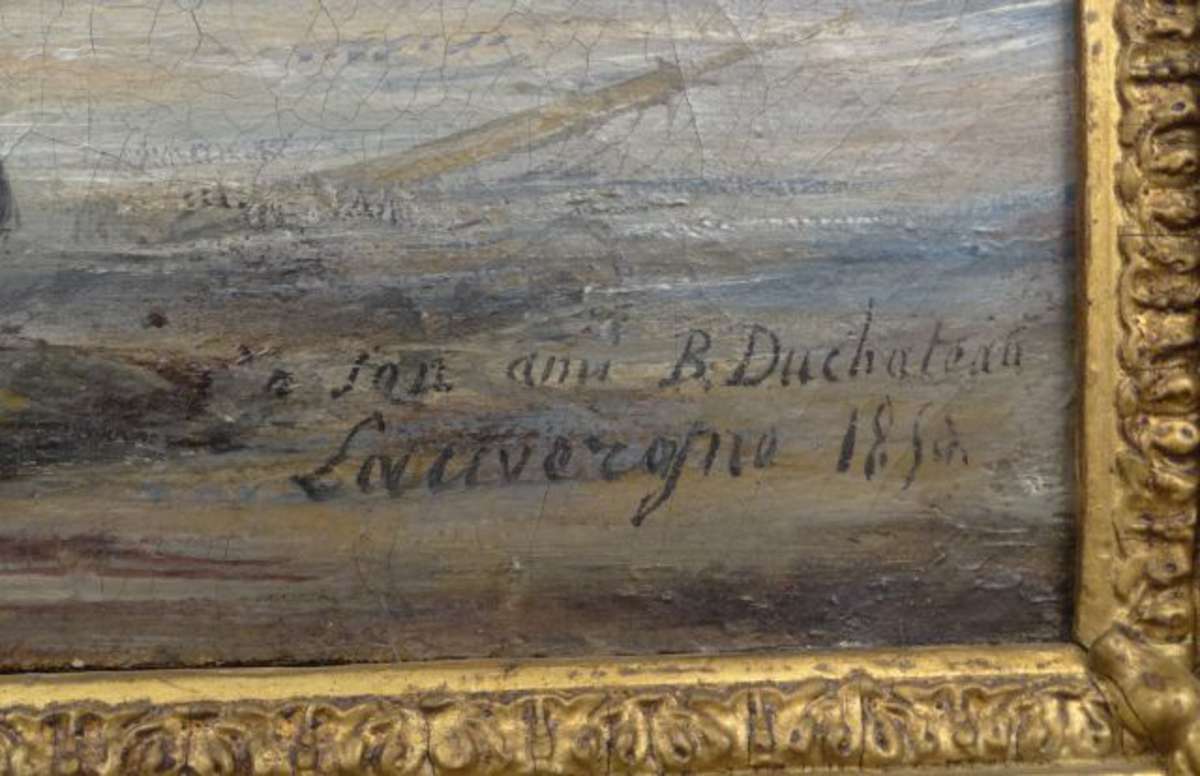 a son ami B. Duchateau
Lauvergne 1850.